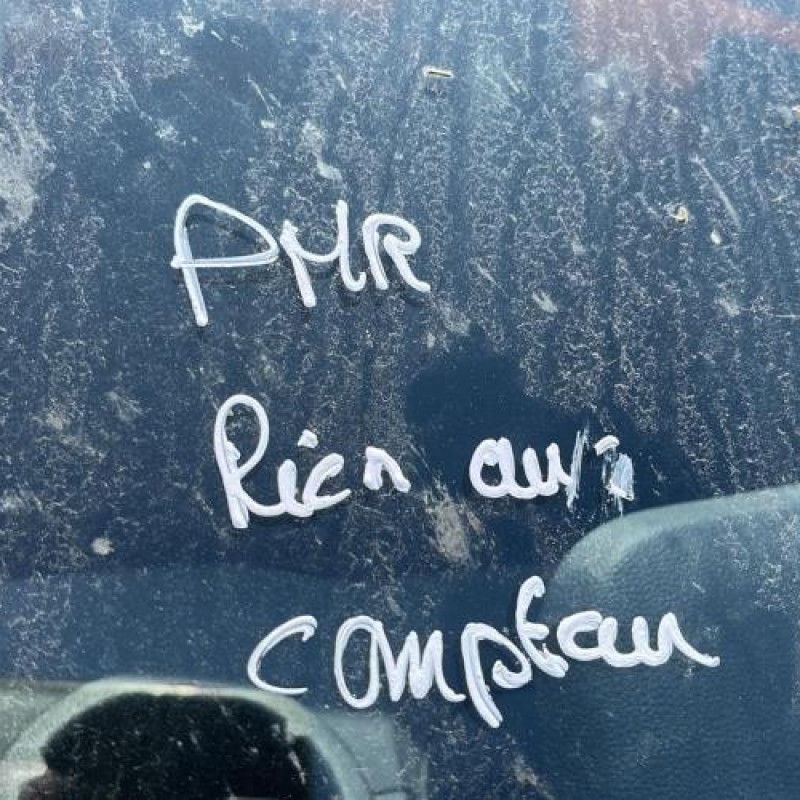 PMR
Rien au
compteur